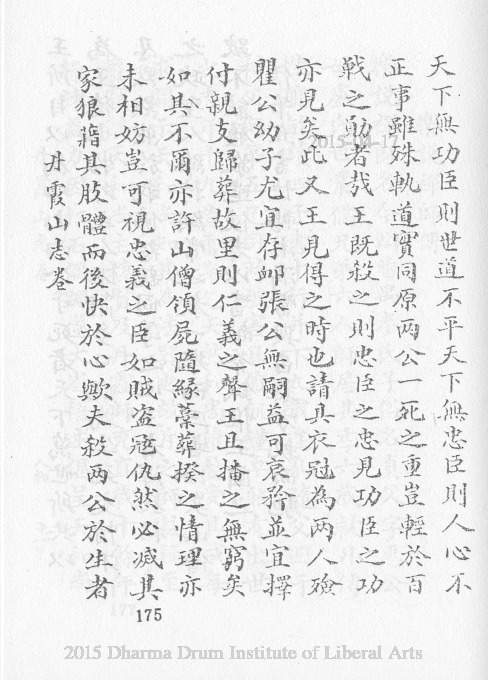 天下無功臣則世道不平天下無忠臣則人心不
正事雖殊軌道實同原兩公一死之重豈輕於百
戰之勛者哉王既殺之則忠臣之忠見功臣之功
亦見矣此又王見得之時也請具衣冠為兩人殮
瞿公幼子尤宜存卹張公無嗣益可哀矜並宜擇
付親支歸葬故里則仁義之聲王且播之無窮矣
如其不爾亦許山僧領屍隨緣藁葬揆之情理亦
未相妨豈可視忠義之臣如賊盜寇仇然必滅其
家狼藉其肢體而後快於心歟夫殺兩公於生者
丹霞山志卷
175
2015-04-17
2015 Dharma Drum Institute of Liberal Arts